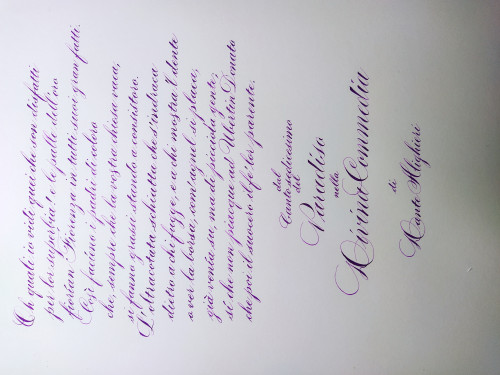 Oh quali io vidi quei che son disfatti
per lor superbia! e le palle dell'oro
fiorian Fiorenza in tutti suoi gran fatti.
Così facieno i padri di coloro
che, sempre che la vostra chiesa vaca,
si fanno grassi stando a consistoro.
L'oltracotata schiatta che s'indraca
dietro a chi fugge, e a chi mostra 'l dente
o ver la borsa, com'agnel si placa,
già venia su, ma di picciola gente;
sì che non piacque ad Ubertin Donato
che poi il suocero il fe' lor parente.
dal
Canto sedicesimo
del
Paradiso
nella
Divina Commedia
di
Dante Alighieri